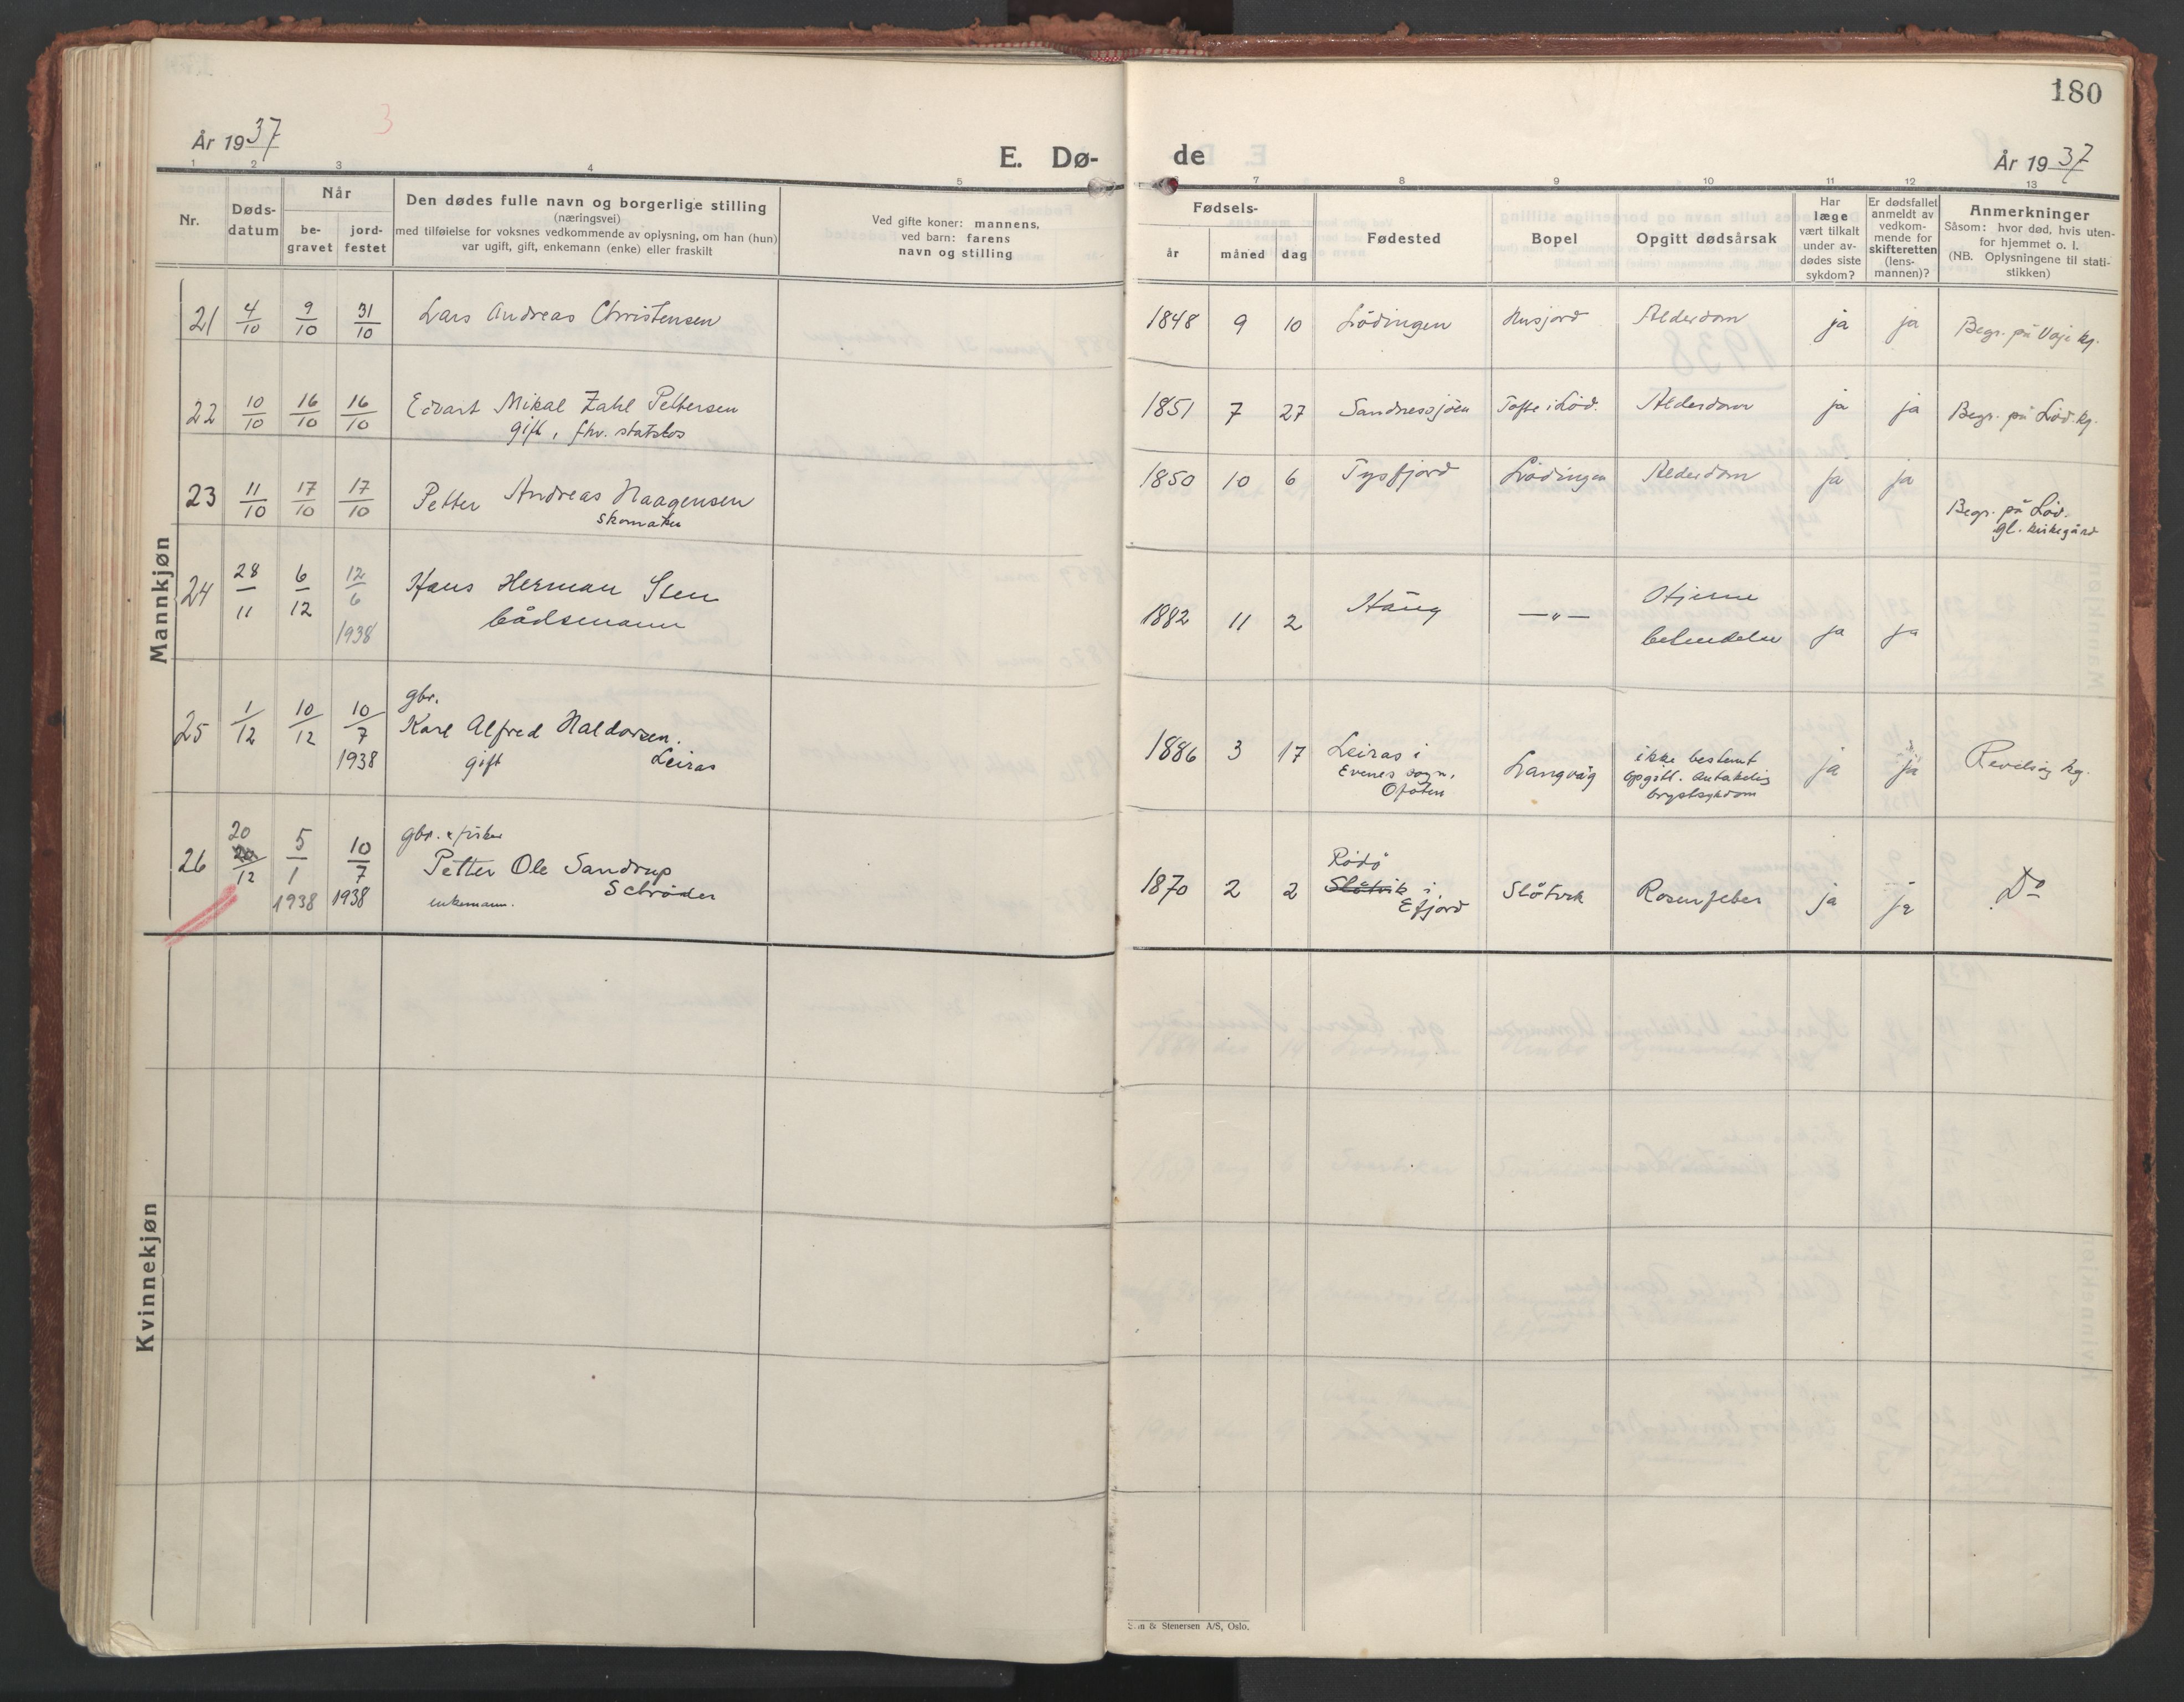 180
År 1937
3
E. Dø-
de
År 1937
1 2 3 4 5
6 7 8 9 10 11 12 13
Nr.
Døds-
datum
Når
be-
gravet
jord-
festet
Den dødes fulle navn og borgerlige stilling
(næringsvei)
med tilføielse for voksnes vedkommende av oplysning, om han (hun)
var ugift, gift, enkemann (enke) eller fraskilt
Ved gifte koner: mannens,
ved barn: farens
navn og stilling
Fødsels-
år måned dag
Fødested
Bopel
Opgitt dødsårsak
Har
læge
vært tilkalt
under av-
dødes siste
sykdom?
Er dødsfallet
anmeldt av
vedkom-
mende for
skifteretten
(lens-
mannen)?
Anmerkninger
Såsom: hvor død, hvis uten-
for hjemmet o. l.
(NB. Oplysningene til stati-
stikken)
Mannkjøn
21 4/10 9/10 31/10 Lars Andreas Christensen 1848 9 10 Lödingen Husjord Alderdom ja ja Begr. på Våge kg.
22 10/10 16/10 16/10 Edvart Mikal Zahl Pettersen 1851 7 27 Sandnessjöen Tofte i Löd. Alderdom ja ja Begr. på Löd. kg.
gift, fhv. statslos
23 11/10 17/10 17/10 Petter Andreas Haagensen 1850 10 6 Tysfjord Lödingen Alderdom ja ja Begr. på Löd.
skomaker gl. kirkegård
24 28/11 6/12 12/6 Hans Herman Sten 1882 11 2 —"— Hjerne
1938 båtsmann betendelse ja ja
gbr.
25 1/12 10/12 10/7 Karl Alfred Haldorsen. 1886 3 17 Leiras i Langvåg ikke bestemt ja ja kg.
1938 gift Leiras Evenes sogn, opgitt. Antakelig
Ofoten brystsykdom
gbr. & fisker
26 20 20/12 5/1 10/7 Petter Ole Sandrup 1870 2 2 Rödö Slötvik i Slötvik Rosenfeber ja ja Do
1938 1938 enkemann. Schröder Efjord
Kvinnekjøn
& Stenersen A/S, Oslo.